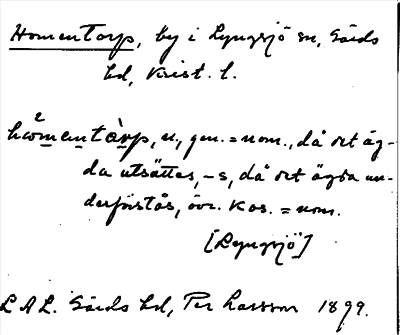 Homentorp, by i Lyngsjö sn, Gärds
hd, Krist. l.
hòmentàrp, n., gen. = nom., då det äg-
da utsättes, -s, då det ägda un-
derförstås, övr. kas. = nom.
[Lyngsjö]
L A L. Gärds hd, Per Larsson 1899.